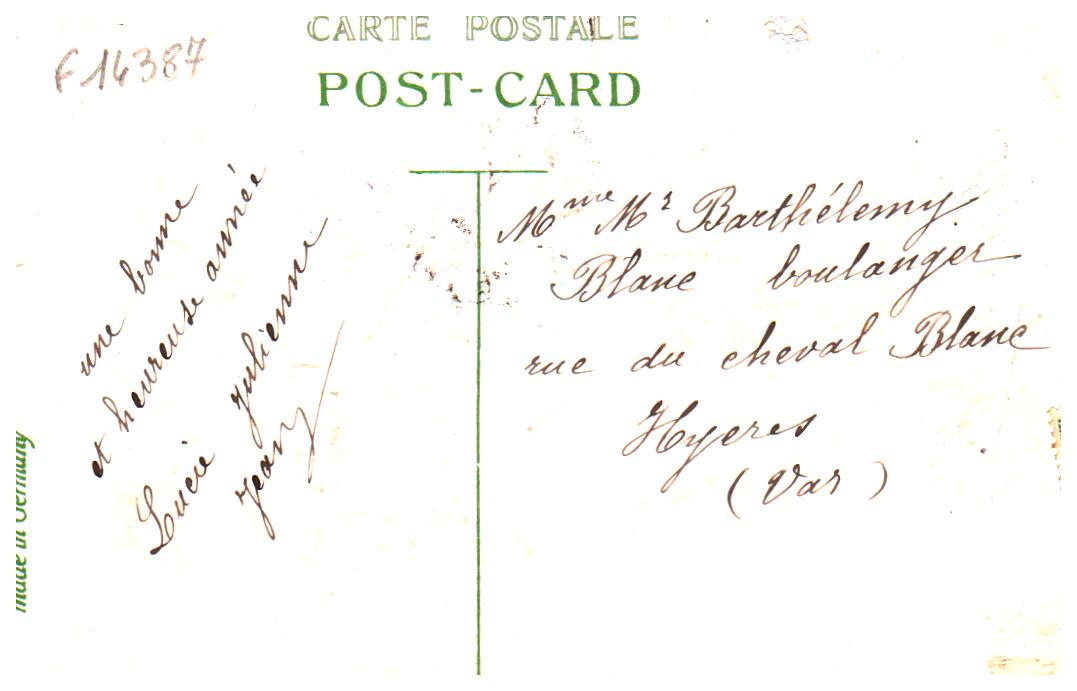 CARTE POSTALE
POST-CARD
F14387
une bonne
et heureuse année
Lucie Julienne
Jean
Mme Mr Barthélemy
Blanc boulanger
rue du cheval Blanc
Hyeres
(Var)
Made in Germany